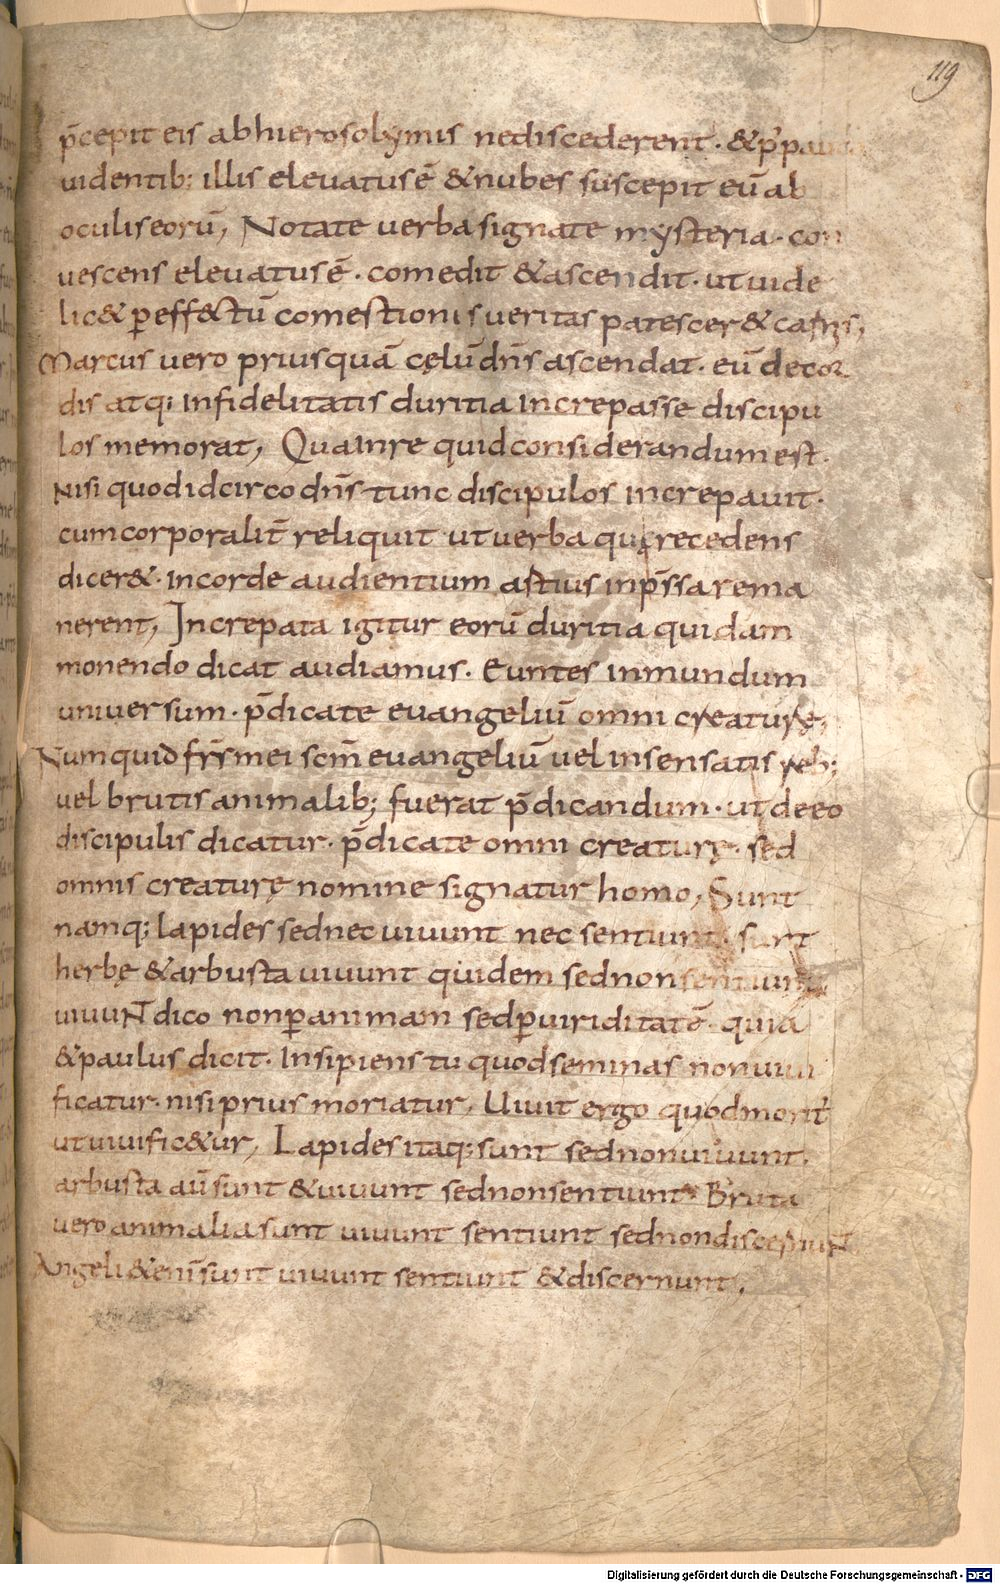 119
p̄cepit eis abhierosolymis nediscederent. &p̄pauca
uidentib; illis eleuatusē &nubes suscepit eū ab
oculiseorū, Notate uerbasignate mysteria. con
uescens eleuatusē. comedit &ascendit. utuide
lic& ꝑeff&ctū comestionisueritas patescer&
Marcus uero priusquā cęlū dn̄s ascendat. eū decor
dis atq; infidelitatis duritia increpasse discipu
los memorat, Quainre quidconsiderandumest.
Nisi quodidcirco dn̄s tunc discipulos increpauit.
cumcorporalit̄ reliquit utuerba quę recedens
dicer&. incorde audientium inp̄ssa rema
nerent, Increpata igitur eorū duritia quidam
monendo dicat audiamus. Euntes inmundum
uniuersum. p̄dicate euangeliū omni creaturę,
Numquid fr̄s mei scm̄ euangeliū uel insensatis reb;
uel brutis animalib; fuerat p̄dicandum. ut deeo
discipulis dicatur. p̄dicate omni creaturę. sed
omnis creaturę nomine signatur homo, Sunt
namq; lapides sednecuiuunt nec sentiunt. sunt
herbę &arbusta uiuunt quidem sednonsentiunt,
uiuunt dico nonꝑanimam sedꝑuiriditatē. quia
&paulus dicit. Insipiens tu quodseminas nonuiui
ficatur. nisiprius moriatur, Uiuit ergo quodmorit̄
utuiuific&ur, Lapides itaq; sunt sednonuiuunt.
arbusta aūsunt &uiuunt sednonsentiunt. Bruta
uero animaliasunt uiuunt sentiunt sednondiscernunt
Angeli&enī sunt uiuunt sentiunt &discernunt,
Digitalisierung gefördert durch die Deutsche Forschungsgemeinschaft - DFG